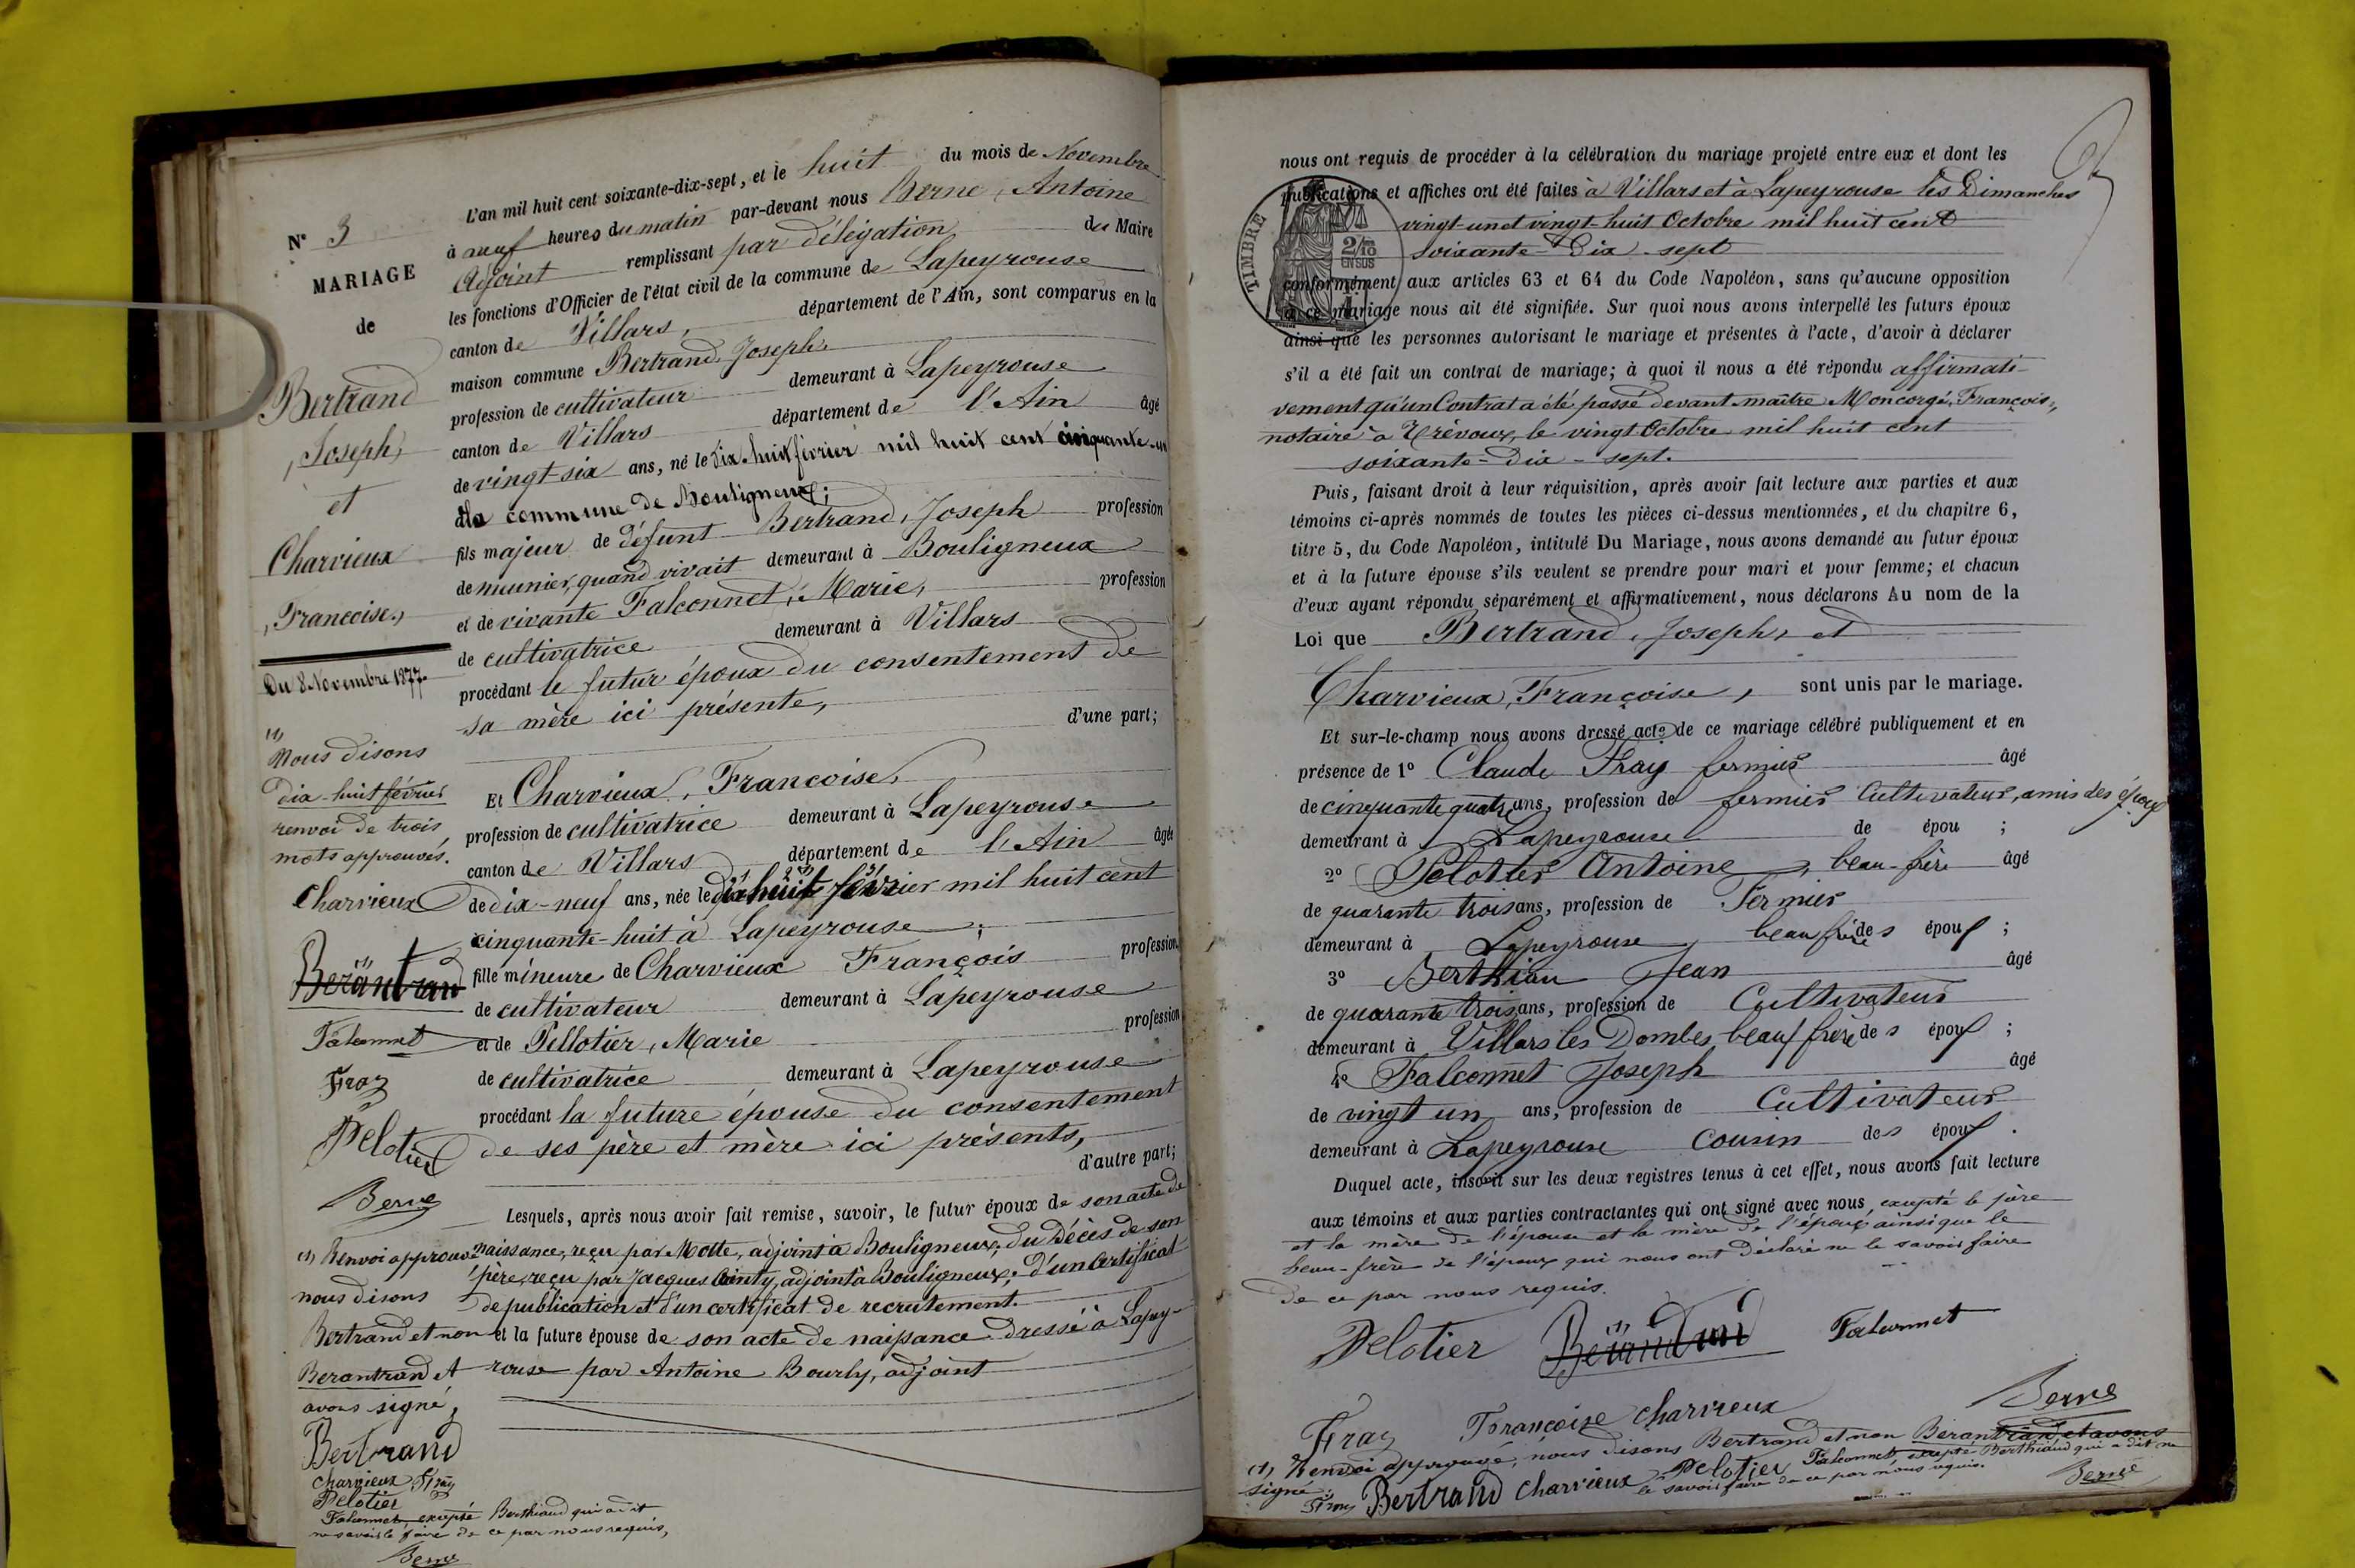 N° 3
MARIAGE
de
Bertrand
Joseph,
et
Charvieux
Francoise,
Du 8 Novembre 1877.
(1)
Nous disons
dix-huit février
renvoi de trois
mots approuvés.
Charvieux
(1)
Berantrand
Falconnet
Fray
Pelotier
Berne
(1) Renvoi approuvé
nous disons
Bertrand et non
Berantrand et
avons signé,
Bertrand
Charvieux Fray
Pelotier
Falconnet, excepté Berthiaud qui a dit
ne savoir le faire de ce par nous requis,
Berne
L'an mil huit cent soixante-dix-sept, et le huit du mois de Novembre
à neuf heures du matin par-devant nous Berne, Antoine
Adjoint remplissant par délégation du Maire
les fonctions d'Officier de l'état civil de la commune de Lapeyrouse
canton de Villars, département de l'Ain, sont comparus en la
maison commune Bertrand, Joseph,
profession de cultivateur demeurant à Lapeyrouse
canton de Villars département de l'Ain âgé
de vingt-six ans, né le dix-huit février mil huit cent cinquante-un
à la commune de Bouligneux;
fils majeur de défunt Bertrand, Joseph profession
de meunier, quand vivait demeurant à Bouligneux
et de vivante Falconnet, Marie, profession
de cultivatrice demeurant à Villars
procédant le futur époux du consentement de
sa mère ici présente,
d'une part;
Et Charvieux, Francoise,
profession de cultivatrice demeurant à Lapeyrouse
canton de Villars département de l'Ain âgée
de dix-neuf ans, née le dix huit février mil huit cent
cinquante-huit à Lapeyrouse;
fille mineure de Charvieux François profession
de cultivateur demeurant à Lapeyrouse
et de Pellotier, Marie profession
de cultivatrice demeurant à Lapeyrouse
procédant la future épouse du consentement
de ses père et mère ici présents,
d'autre part;
Lesquels, après nous avoir fait remise, savoir, le futur époux de son acte de
naissance, reçu par Motte, adjoint à Bouligneux; du décès de son
père, reçu par Jacques adjoint à Bouligneux; d'un certificat
de publication et d'un certificat de recrutement.
et la future épouse de son acte de naissance dressé à Lapey-
rouse par Antoine Bourly, adjoint
nous ont requis de procéder à la célébration du mariage projeté entre eux et dont les
publications et affiches ont été faites à Villars et à Lapeyrouse les Dimanches
vingt-un et vingt-huit Octobre mil huit cent
soixante-Dix-sept
TIMBRE
2/10
EN SUS
conformément aux articles 63 et 64 du Code Napoléon, sans qu'aucune opposition
à ce mariage nous ait été signifiée. Sur quoi nous avons interpellé les futurs époux
ainsi que les personnes autorisant le mariage et présentes à l'acte, d'avoir à déclarer
s'il a été fait un contrat de mariage; à quoi il nous a été répondu affirmati-
vement qu'un Contrat a été passé devant maître Moncorgé, François,
notaire à Trévoux, le vingt Octobre mil huit cent
soixante-Dix-sept.
Puis, faisant droit à leur réquisition, après avoir fait lecture aux parties et aux
témoins ci-après nommés de toutes les pièces ci-dessus mentionnées, et du chapitre 6,
titre 5, du Code Napoléon, intitulé Du Mariage, nous avons demandé au futur époux
et à la future épouse s'ils veulent se prendre pour mari et pour femme; et chacun
d'eux ayant répondu séparément et affirmativement, nous déclarons Au nom de la
Loi que Bertrand, Joseph, et
Charvieux, Françoise, sont unis par le mariage.
Et sur-le-champ nous avons dressé acte de ce mariage célébré publiquement et en
présence de 1° Claude Fray fermier âgé
de cinquante quatre ans, profession de fermier Cultivateur, amis des époux
demeurant à Lapeyrouse de épou ;
2° Pelotier Antoine, beau-frère âgé
de quarante trois ans, profession de Fermier
demeurant à Lapeyrouse, beau frère des époux ;
3° Berthiau Jean âgé
de quarante trois ans, profession de Cultivateur
demeurant à Villars les Dombes beau frère des époux ;
4° Falconnet Joseph âgé
de vingt un ans, profession de Cultivateur
demeurant à Lapeyrouse cousin des époux.
Duquel acte, inscrit sur les deux registres tenus à cet effet, nous avons fait lecture
aux témoins et aux parties contractantes qui ont signé avec nous, excepté le père
et la mère de l'épouse et la mère de l'époux ainsi que le
beau-frère de l'époux qui nous ont déclaré ne le savoir faire
de ce par nous requis.
Pelotier
(1)
Berandrand
Falconnet
Fray
Françoise Charvieux
Berne
(1) Renvoi approuvé, nous disons Bertrand et non Berantrand, et avons
signé: Fray Bertrand Charvieux Pelotier Falconnet, excepté Berthiaud qui a dit ne
le savoir faire de ce par nous requis.
Berne